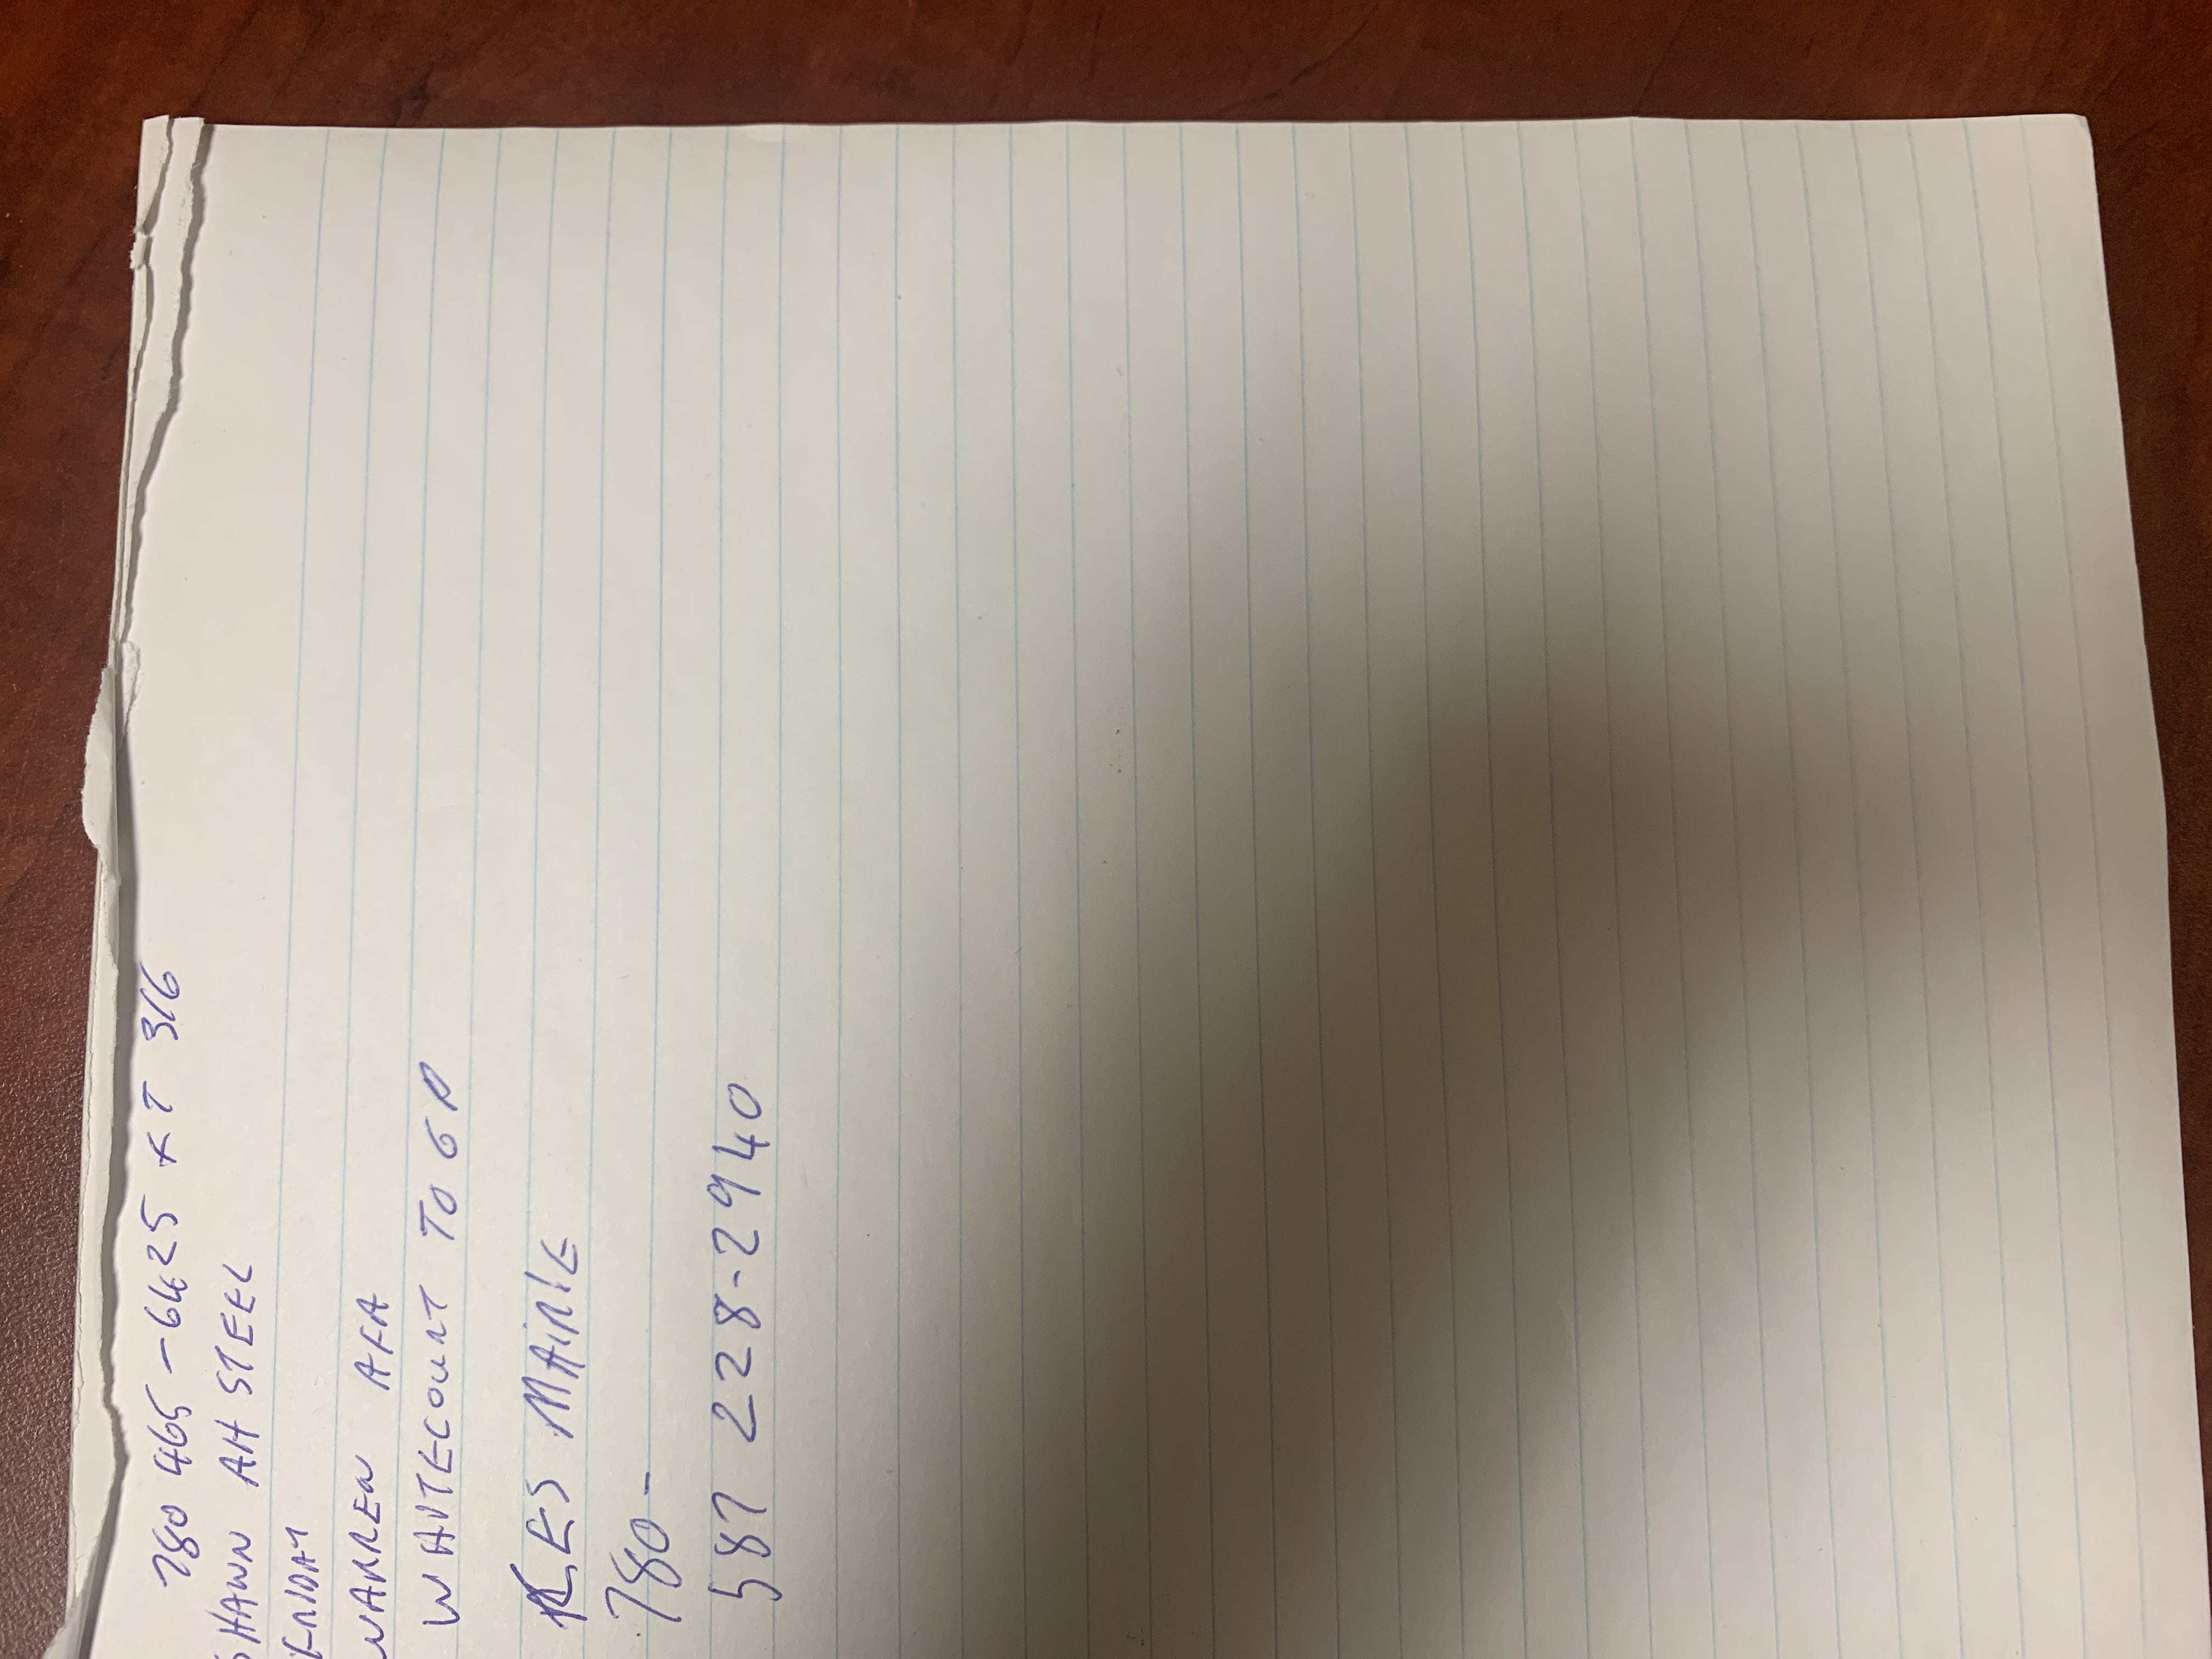 780 465-6425 XT 316
SHAWN AH STEEL
FRIDAY
WARREN AFA
WHITECOURT TO GP
MAIRIE
780-
587 228-2940